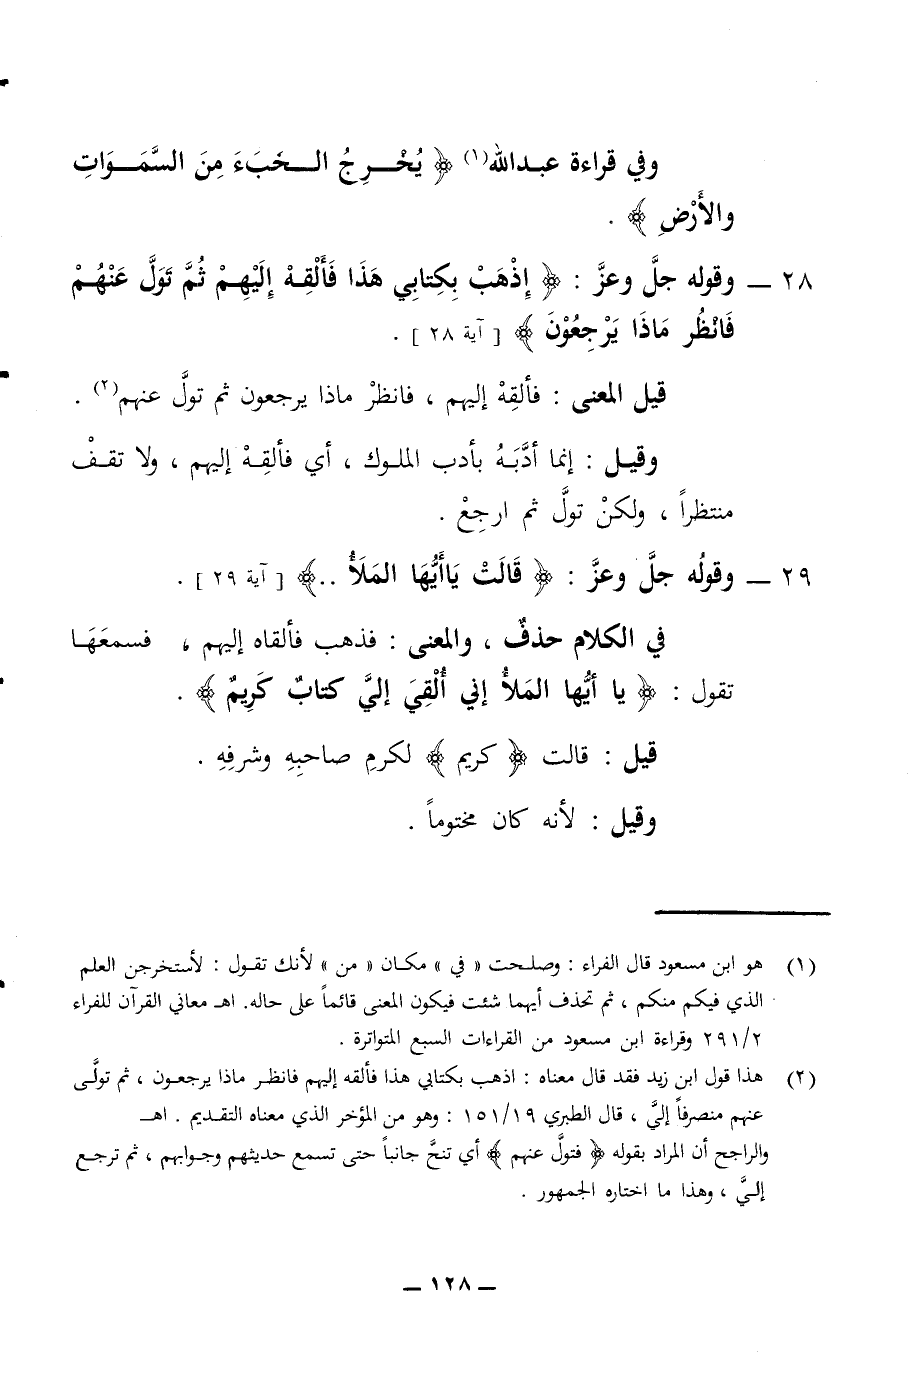 وفي قراءة عبدالله(١) ﴿ يُخْـــرِجُ الـــخَبْءَ مِنَ السَّمَـــوَاتِ
والأَرْضِ ﴾ .
٢٨ ــ وقوله جلَّ وعزَّ : ﴿ إِذْهَبْ بِكِتابِي هَذَا فَأَلْقِـهْ إِلَيْهِـمْ ثُمَّ تَوَلَّ عَنْهُـمْ
فَانْظُر مَاذَا يَرْجِعُوْنَ ﴾ [ آية ٢٨ ] .
قيل المعنى : فألقِهْ إليهم ، فانظرْ ماذا يرجعون ثم تولَّ عنهم(٢) .
وقيـل : إنما أدَّبَـهُ بأدب الملـوك ، أي فألقِـهْ إليهم ، ولا تقـفْ
منتظراً ، ولكنْ تولَّ ثم ارجِعْ .
٢٩ ــ وقولُه جلَّ وعزَّ : ﴿ قَالَتْ يَاأَيُّهَا المَلَأُ ..﴾ [ آية ٢٩ ] .
في الكلام حذفٌ ، والمعنى : فذهب فألقاه إليهم ، فسمعَهَـا
تقول : ﴿ يا أيُّها المَلأُ إني أُلْقِيَ إليَّ كتابٌ كَرِيمٌ ﴾ .
قيل : قالت ﴿ كريم ﴾ لكرمِ صاحبِهِ وشرفِهِ .
وقيل : لأنه كان مختوماً .
(١) هو ابن مسعود قال الفراء : وصلـحت « في » مكـان « من » لأنك تقـول : لأستخرجن العلم
الذي فيكم منكم ، ثم تحذف أيهما شئت فيكون المعنى قائماً على حاله. اهـ معاني القرآن للفراء
٢٩١/٢ وقراءة ابن مسعود من القراءات السبع المتواترة .
(٢) هذا قول ابن زيد فقد قال معناه : اذهب بكتابي هذا فألقه إليهم فانظـر ماذا يرجعـون ، ثم تولَّـى
عنهم منصرفاً إليَّ ، قال الطبري ١٥١/١٩ : وهو من المؤخر الذي معناه التقديم . اهـ
والراجح أن المراد بقوله ﴿ فتولَّ عنهم ﴾ أي تنحَّ جانباً حتى تسمع حديثهم وجـوابهم ، ثم ترجـع
إلـيَّ ، وهذا ما اختاره الجمهور .
ــ ١٢٨ ــ